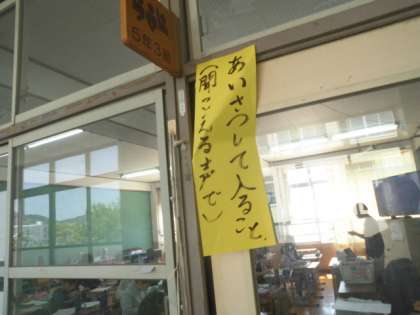 5年3組
あいさつして入ること。
(聞こえる声で)